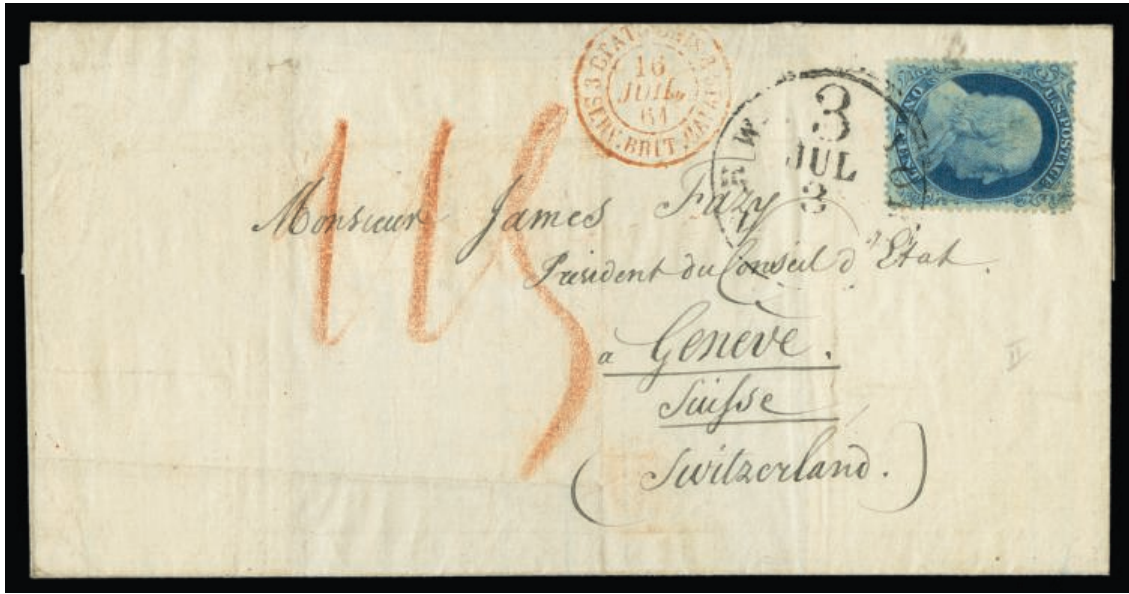 3 ETATS-UNIS
SERV. BRIT.
16
JUIL.
61
NEW
3
JUL
3
U.S. POSTAGE
ONE CENT
115
Monsieur James Fazy
Président du Conseil d'État.
a Genève.
Suisse
(Switzerland.)